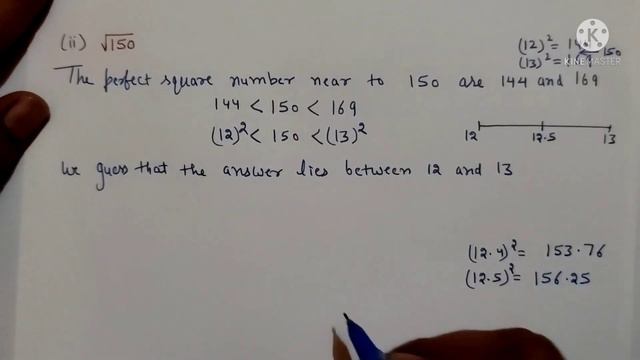 (ii) √150
(12)² = 14
150
(13)² =
KINEMASTER
The perfect square number near to 150 are 144 and 169
144 < 150 < 169
(12)² < 150 < (13)²
12 12.5 13
We guess that the answer lies between 12 and 13
(12.4)² = 153.76
(12.5)² = 156.25